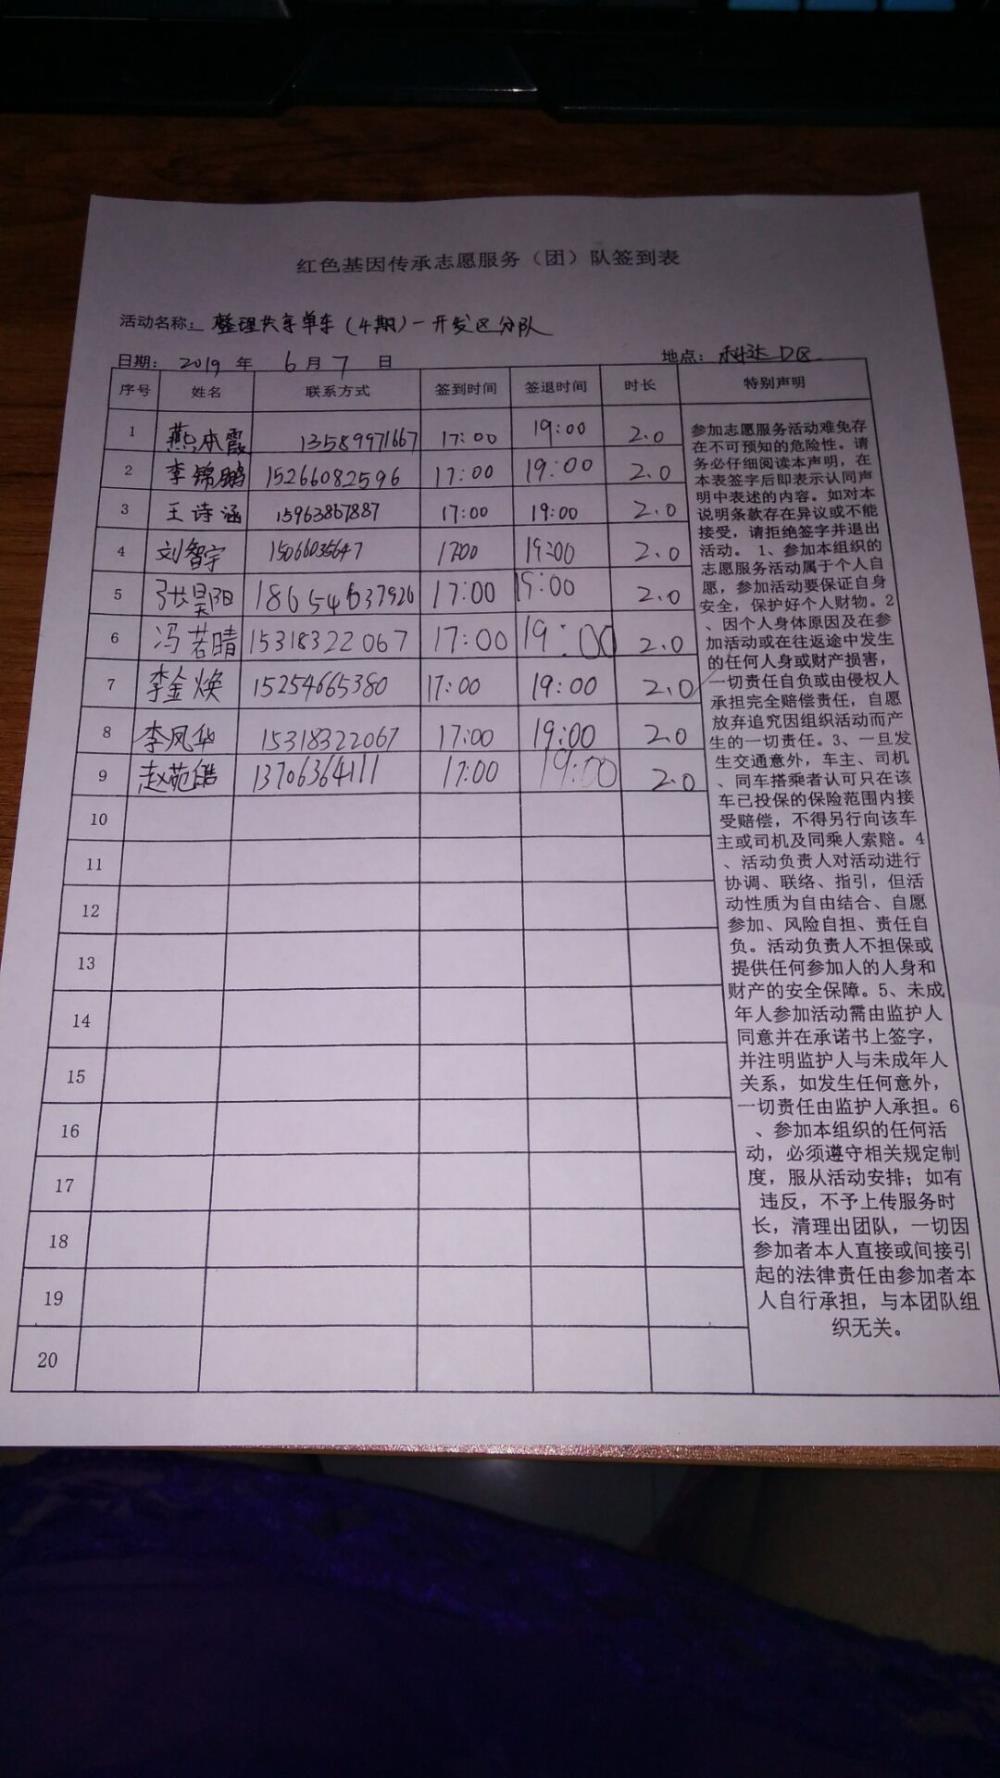 红色基因传承志愿服务（团）队签到表
活动名称：整理共享单车（4期）－开发区分队
日期：2019 年 6 月 7 日 地点：科达 D区
序号 姓名 联系方式 签到时间 签退时间 时长 特别声明
1 燕本霞 13589971667 17:00 19:00 2.0
2 李锦鹏 15266082596 17:00 19:00 2.0
3 王诗涵 15963867887 17:00 19:00 2.0
4 刘智宇 15066035647 1700 19:00 2.0
5 张昊阳 17:00 19:00 2.0
6 冯若晴 15318322067 17:00 19:00 2.0
7 李金焕 15254665380 17:00 19:00 2.0
8 李凤华 15318322067 17:00 19:00 2.0
9 赵苑皓 13706364111 17:00 19:00 2.0
10
11
12
13
14
15
16
17
18
19
20
参加志愿服务活动难免存
在不可预知的危险性。请
务必仔细阅读本声明，在
本表签字后即表示认同声
明中表述的内容。如对本
说明条款存在异议或不能
接受，请拒绝签字并退出
活动。 1、参加本组织的
志愿服务活动属于个人自
愿，参加活动要保证自身
安全，保护好个人财物。2
、因个人身体原因及在参
加活动或在往返途中发生
的任何人身或财产损害，
一切责任自负或由侵权人
承担完全赔偿责任，自愿
放弃追究因组织活动而产
生的一切责任。3、一旦发
生交通意外，车主、司机
、同车搭乘者认可只在该
车已投保的保险范围内接
受赔偿，不得另行向该车
主或司机及同乘人索赔。4
、活动负责人对活动进行
协调、联络、指引，但活
动性质为自由结合、自愿
参加、风险自担、责任自
负。活动负责人不担保或
提供任何参加人的人身和
财产的安全保障。5、未成
年人参加活动需由监护人
同意并在承诺书上签字，
并注明监护人与未成年人
关系，如发生任何意外，
一切责任由监护人承担。6
、参加本组织的任何活
动，必须遵守相关规定制
度，服从活动安排；如有
违反，不予上传服务时
长，清理出团队，一切因
参加者本人直接或间接引
起的法律责任由参加者本
人自行承担，与本团队组
织无关。